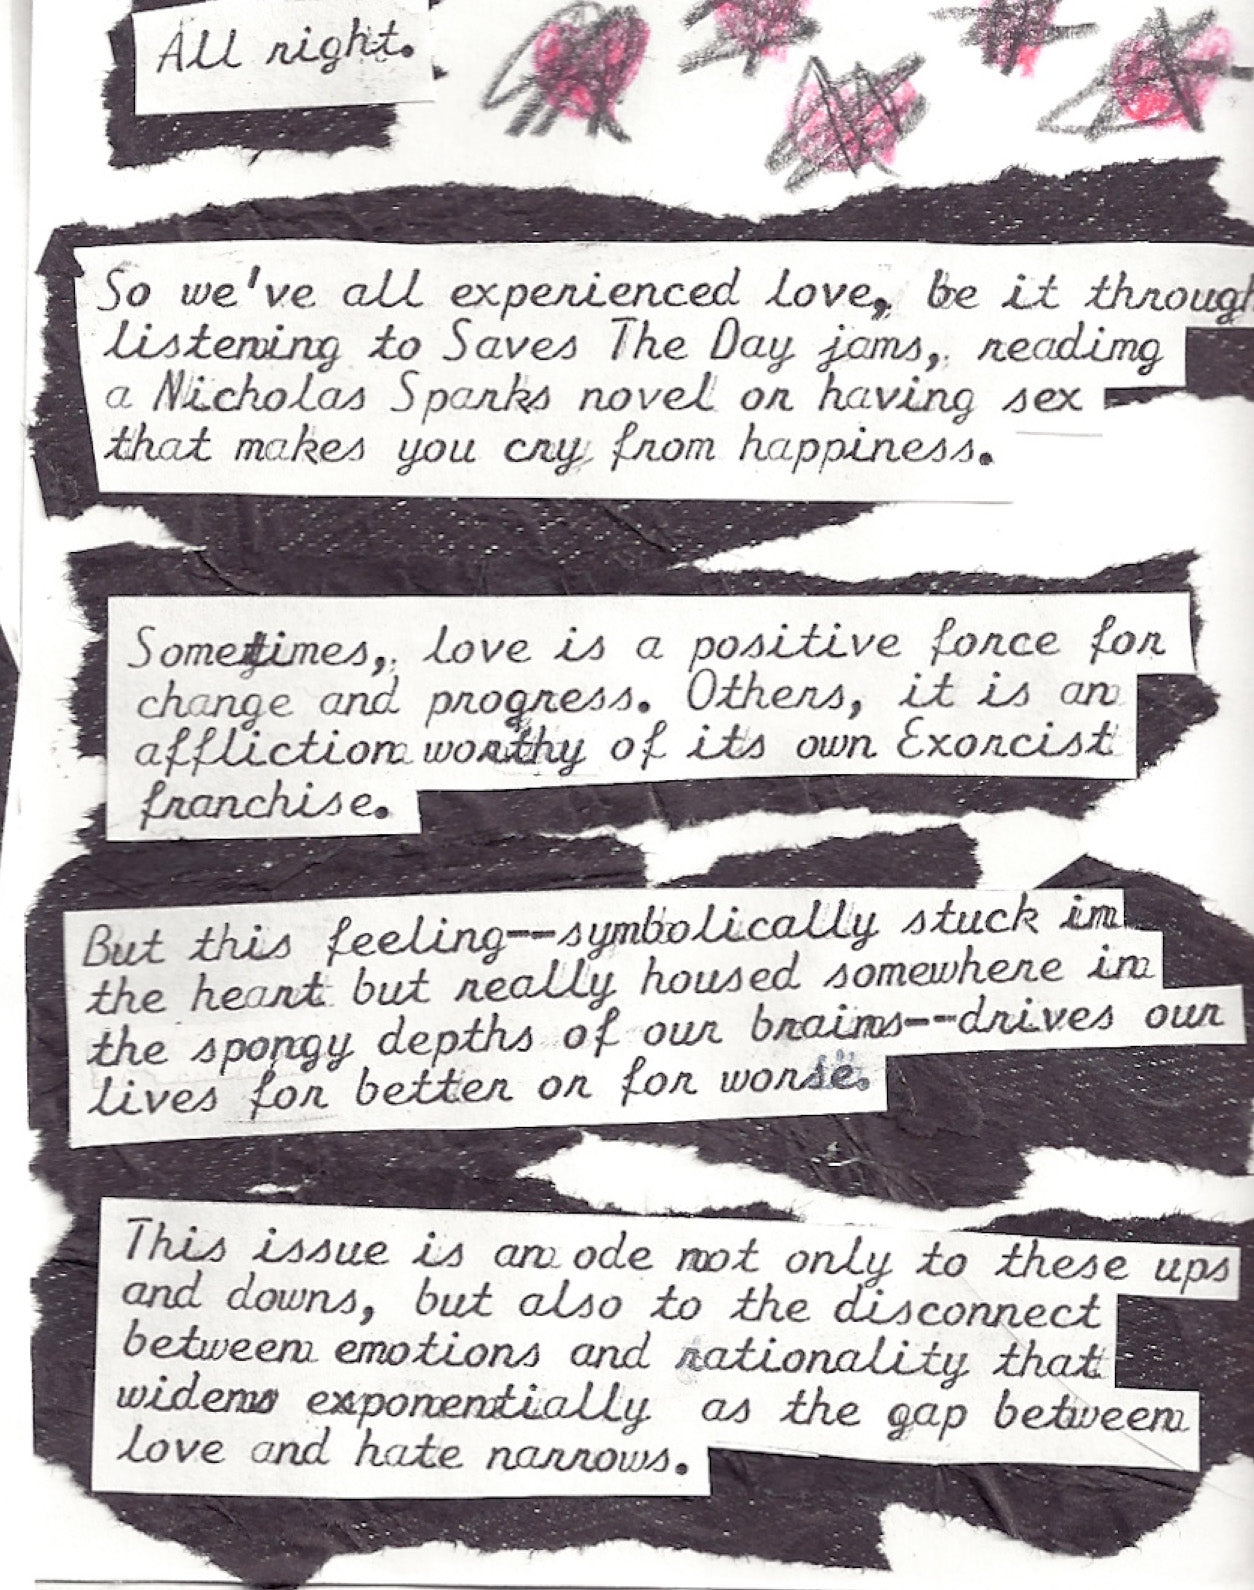 All right.
So we've all experienced love, be it through
listening to Saves The Day jams, reading
a Nicholas Sparks novel or having sex
that makes you cry from happiness.
Sometimes, love is a positive force for
change and progress. Others, it is an
affliction worthy of its own Exorcist
franchise.
But this feeling--symbolically stuck in
the heart but really housed somewhere in
the spongy depths of our brains--drives our
lives for better or for worse.
This issue is an ode not only to these ups
and downs, but also to the disconnect
between emotions and rationality that
widens exponentially as the gap between
love and hate narrows.